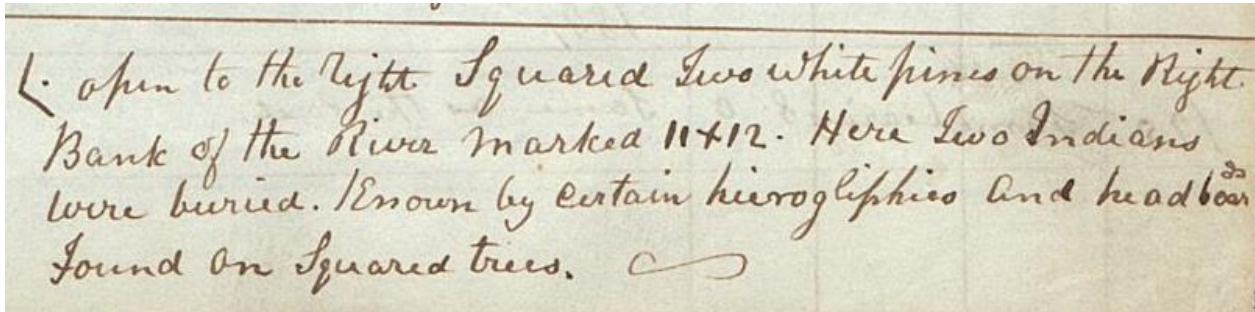 L. open to the Right Squared Two White pines on the Right
Bank of the River Marked 11+12. Here Two Indians
were buried. Known by Certain hierogliphics and headboards
Found on Squared trees.